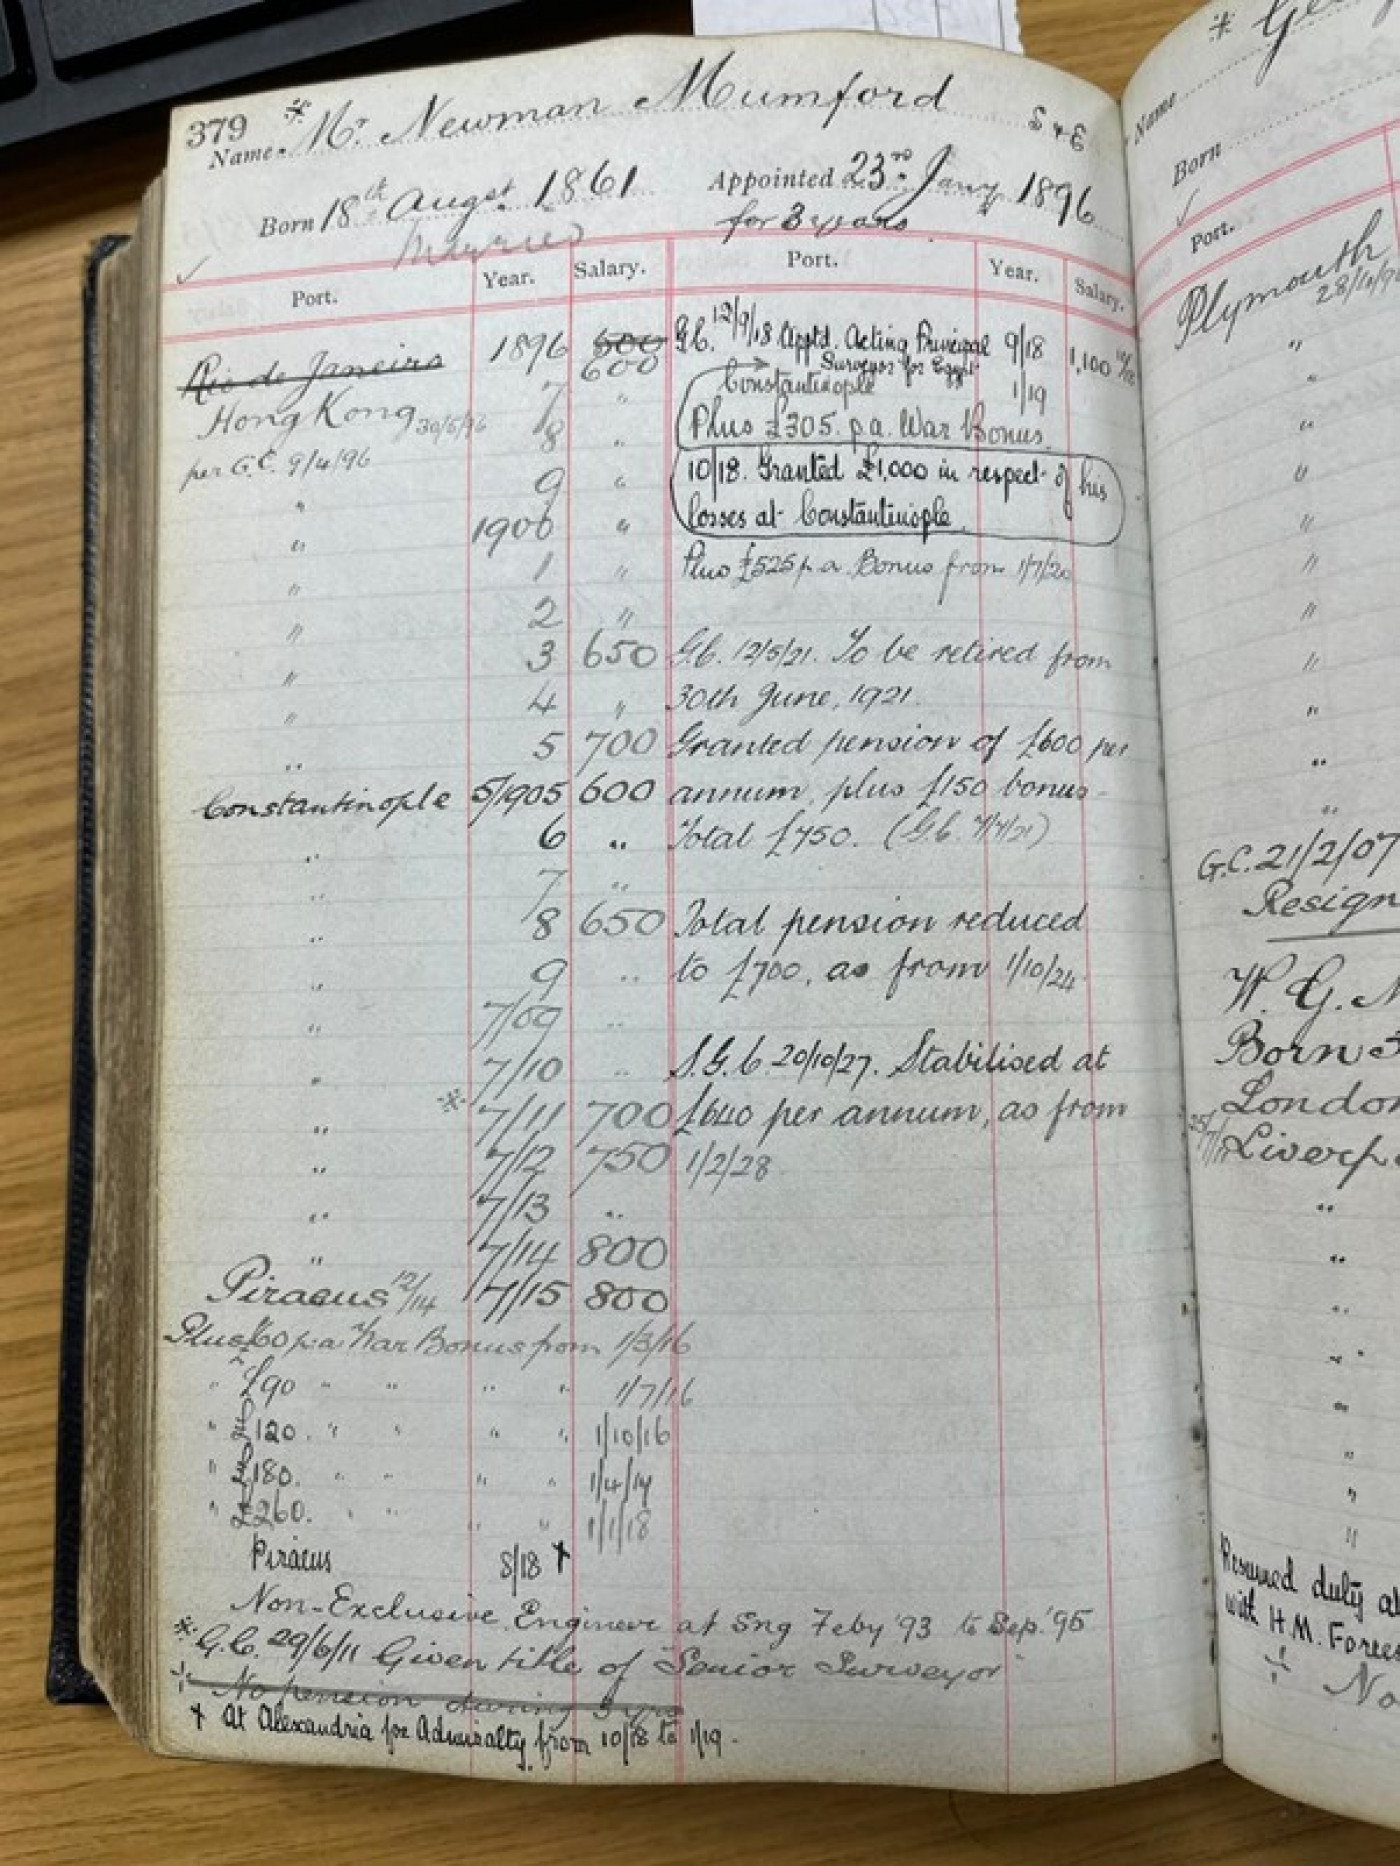 379
* Mr. Newman Mumford
S & E
Name
Born 18th Augst. 1861
Appointed 23rd Jany 1896
for 3 years
Married
Port. Year. Salary. Port. Year. Salary.
Rio de Janeiro 1896 500
600
Hong Kong 30/5/96 7 "
per G.C. 9/4/96 8 "
" 9 "
" 1900 "
" 1 "
" 2 "
" 3 650
" 4 "
" 5 700
Constantinople 5/1905 600
" 6 "
" 7 "
" 8 650
" 9 "
" 7/09 "
" 7/10 "
" * 7/11 700
" 7/12 750
" 7/13 "
" 7/14 800
Piraeus 12/14 7/15 800
Plus £60 p.a War Bonus from 1/3/16
" £90 " " " " 1/7/16
" £120. " " " " 1/10/16
" £180. " " " " 1/4/17
" £260. " " " " 1/1/18
Piraeus 8/18 †
G.C. 12/9/18 Apptd. Acting Principal 9/18 1,100
Surveyor for Egypt
Constantinople 1/19
Plus £305. p.a. War Bonus.
10/18. Granted £1,000 in respect of his
losses at Constantinople.
Plus £525 p.a. Bonus from 1/7/20
G.C. 12/5/21. To be retired from
30th June, 1921.
Granted pension of £600 per
annum, plus £150 bonus-
Total £750. (G.C. 7/7/21)
Total pension reduced
to £700, as from 1/10/24
S.G.C. 20/10/27. Stabilised at
£640 per annum, as from
1/2/28
Non-Exclusive Engineer at Sng Feby '93 to Sep. '95
* G.C. 29/6/11 Given title of "Senior Surveyor"
No pension during 3 yrs
† At Alexandria for Admiralty from 10/18 to 1/19.
* Geo
Name
Born
Port.
Plymouth
G.C. 21/2/07
Resign
W. G.
Born
London
Liverp
Resumed duty at
with H.M. Forces
No